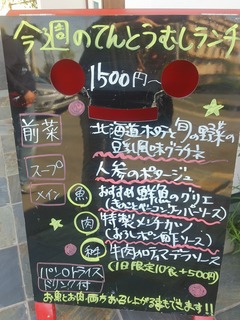 今週のてんとうむしランチ
1500円～
前菜 北海道ホタテと旬の野菜の
豆乳風味グラチネ
スープ 人参のポタージュ
メイン 魚 おすすめ鮮魚のグリエ
肉 特製メンチカツ
(おろしポン酢ソース)
牛肉のロティ マデラソース
(1日限定10食+500円)
パンorライス
ドリンク付
お魚とお肉両方
できます!!